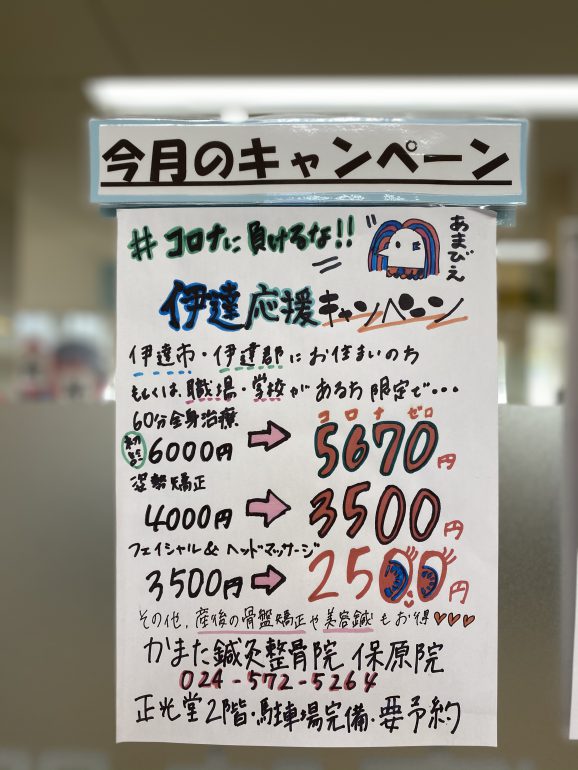 今月のキャンペーン
#コロナに負けるな!!
あまびえ
伊達応援キャンペーン
伊達市・伊達郡にお住まいの方
もしくは、職場・学校がある方限定で・・・
60分全身治療
コロナゼロ
初診 6000円 → 5670円
姿勢矯正
4000円 → 3500円
フェイシャル&ヘッドマッサージ
3500円 → 2500円
その他、産後の骨盤矯正や美容鍼もお得♡♡♡
かまた鍼灸整骨院 保原院
024-572-5264
正光堂2階・駐車場完備・要予約